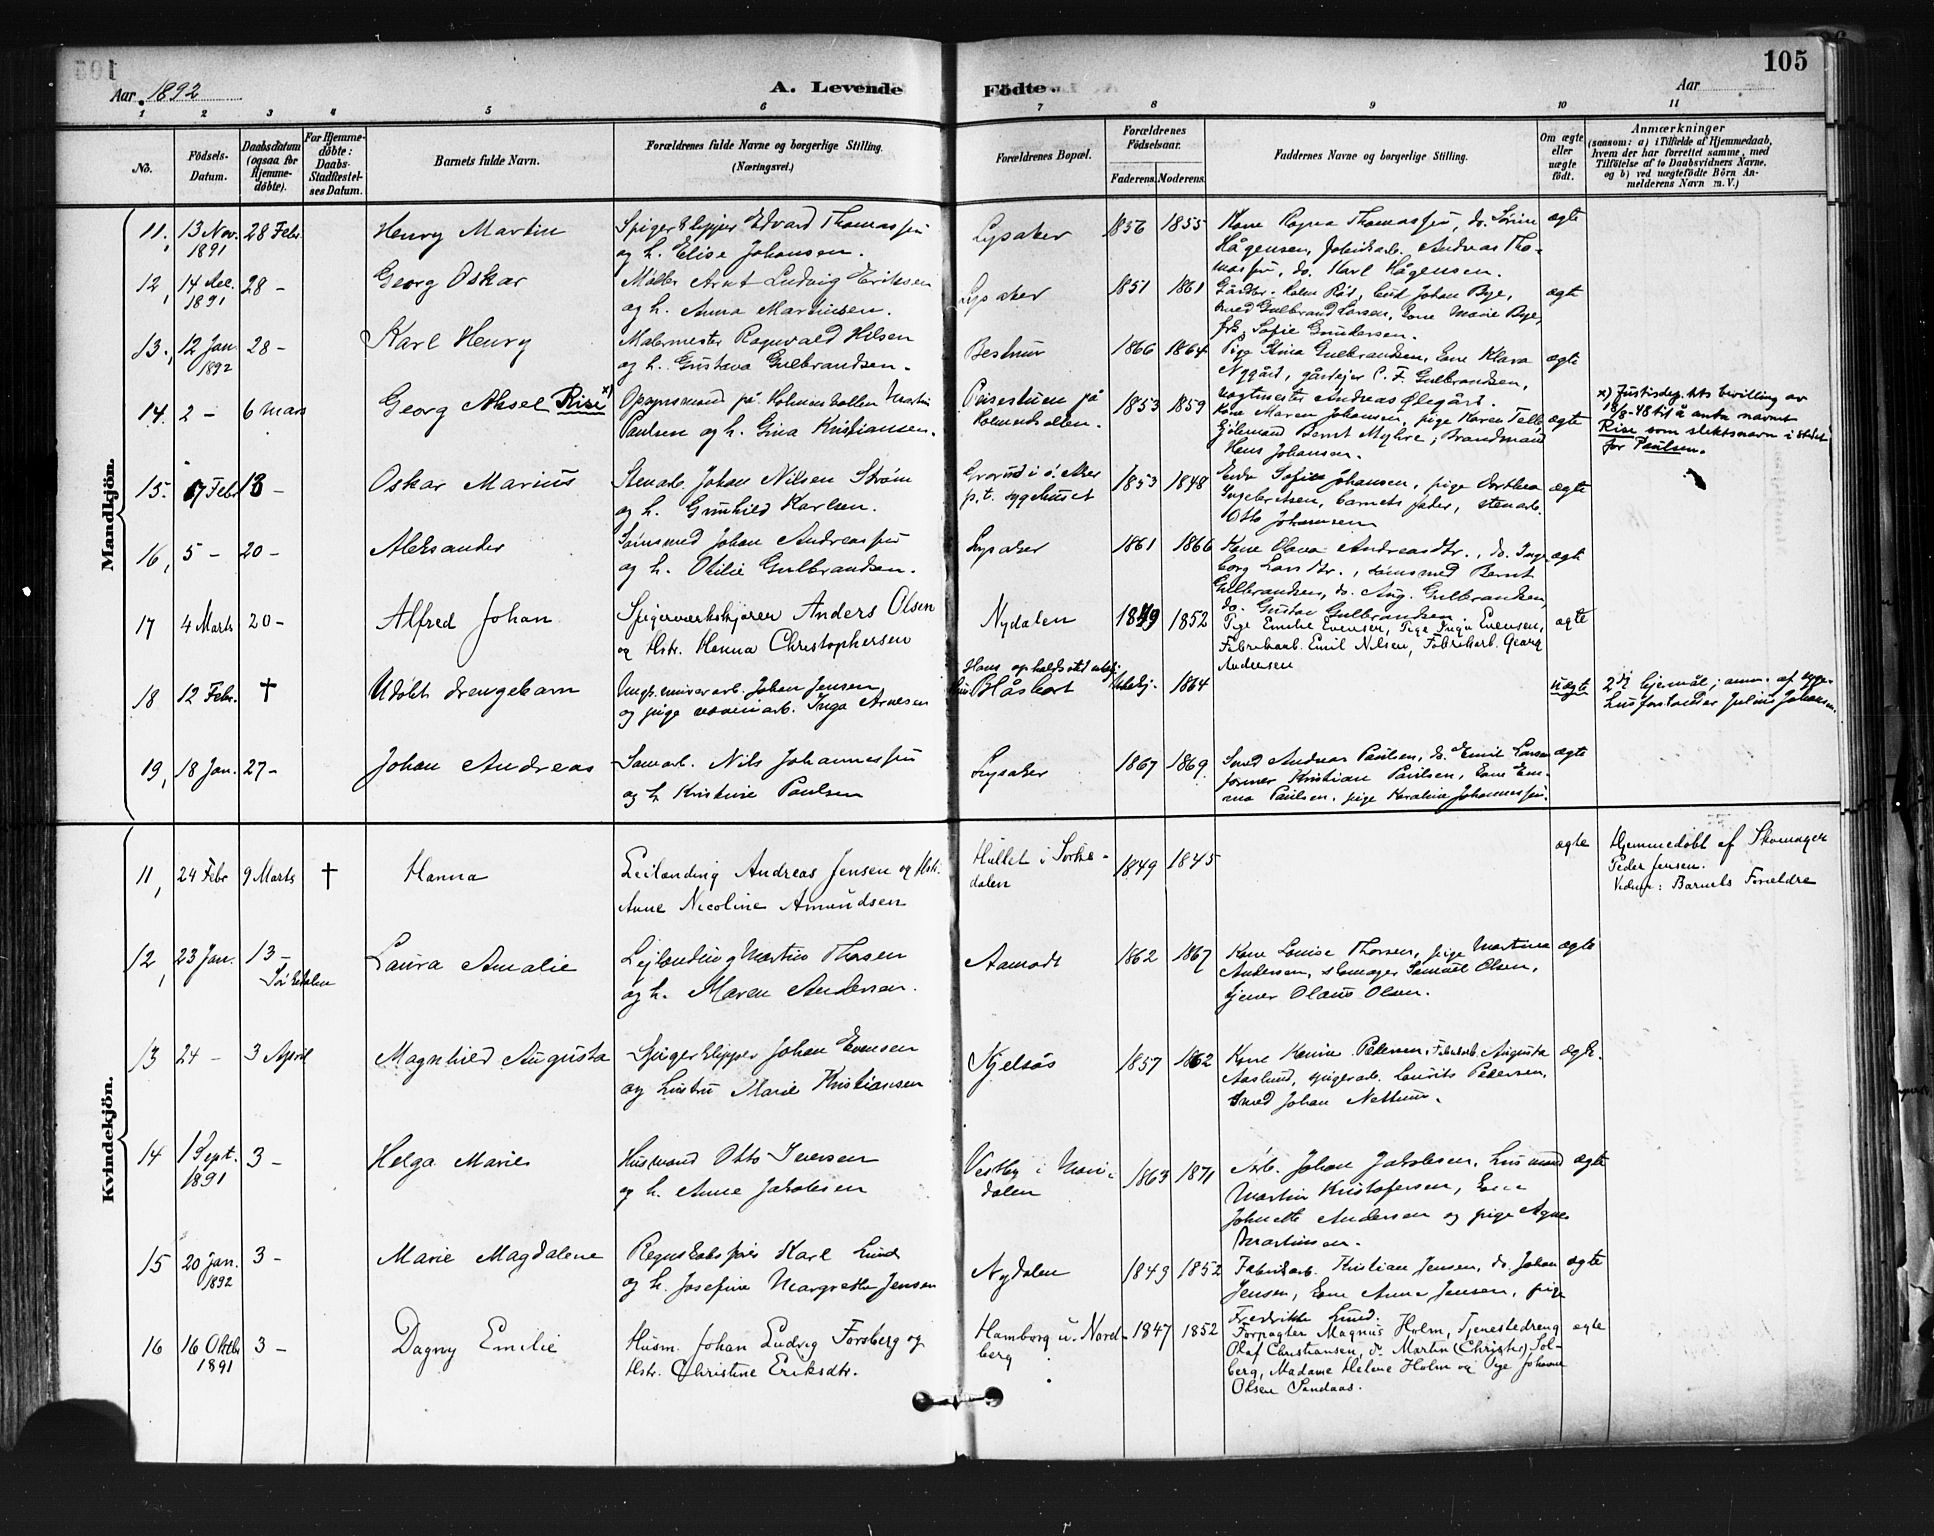 105
Aar 1892
A. Levende Födte.
Aar
1 2 3 4 5 6 7 8 9 10 11
No.
Födsels-Datum.
Daabsdatum (ogsaa for Hjemme-döbte).
For Hjemme-döbte: Daabs-Stadfæstel-ses Datum.
Barnets fulde Navn.
Forældrenes fulde Navne og borgerlige Stilling. (Næringsvei.)
Forældrenes Bopæl.
Forældrenes Födselsaar.
Faderens. Moderens.
Faddernes Navne og borgerlige Stilling.
Om ægte eller uægte födt.
Anmærkninger
(saasom: a) i Tilfælde af Hjemmedaab, hvem der har forrettet samme, med Tilföielse af to Daabsvidners Navne. og b) ved uægtefödte Börn An-melderens Navn m. V.)
Mandkjön.
11. 13 Nov. 1891 28 Febr. Henry Martin
Spigerklipper Edvard Thomassen
og h. Elise Johansen.
Lysaker 1856 1855
Kone Ragna Thomassen, do. Sörine
Hågensen, Fabrikarb. Andreas Tho-
massen, do. Karl Hågensen.
ægte
12, 14 Dec. 1891 28 - Georg Oskar
Möller Arnt Ludvig Eriksen
og h. Anna Martinsen.
Lysaker 1851 1861
Johan Bye,
Gulbrand Larsen, Kone Marie Bye,
frk. Sofie Gundersen.
ægte
13., 12 Jan. 1892 28 - Karl Henry
Malermester Ragnvald Nilsen
og h. Gustava Gulbrandsen.
Bestum 1866 1864
Pige Stina Gulbrandsen, Kone Klara
Nygård, gårdejer C. F. Gulbrandsen,
Vagtmester Andreas Ödegård.
ægte
14. 2 - 6 Mars Georg Aksel Rise x)
Opsynsmand på Holmenkollen Martin
Paulsen og h. Gina Kristiansen.
Peisestuen på
Holmenkollen.
1853 1859
Kone Maren Johansen, pige Karen Telle,
Bernt Myhre, Brandmand
Hans Johansen.
ægte
x) Justisdep.kts bevilling av
18/8-48 til å anta navnet
Rise som slektsnavn i stedet
for Paulsen.
15. 7 Feb 13 - Oskar Marius
Stenarb. Johan Nilsen Ström
og h. Gunhild Karlsen.
Grorud i ö. Aker
p.t. sygehuset
1853 1848
Enke Sofie Johansen, pige Dorthea
Ingebretsen, barnets fader, stenarb.
Otto Johansen
ægte
16, 5 - 20 - Aleksander
Sömsmed Johan Andreassen
og h. Otilie Gulbrandsen.
Lysaker 1861 1866
Kone Olava Andreasdtr., do. Inge-
borg Larsdtr., sömsmed Bernt
Gulbrandsen, do. Aug. Gulbrandsen,
do. Gustav Gulbrandsen
ægte
17 4 Marts 20 - Alfred Johan
Spigerverkskjörer Anders Olsen
og Hstr. Hanna Christophersen
Nydalen 1849 1852
Pige Emilie Evensen, Pige Inga Evensen,
Fabrikarb. Emil Nilsen, Fabrikarb. Georg
Andresen
ægte
18 12 Febr. † Udöbt drengebarn
Ungk. murerarb. Johan Jensen
og pige væveriarb. Inga Arnesen
Hans opholdssted ubekj.
Blåskort
Ubekj. 1864
uægte
2det lejermål; anm. af syge-
husforstander Julius Johansen.
19, 18 Jan. 27 - Johan Andreas
Sömarb. Nils Johannessen
og h. Kristine Paulsen
Lysaker 1867 1869
Smed Andreas Paulsen, do. Emil Larsen
former Kristian Paulsen, Kone Em-
ma Paulsen, pige Karoline Johannessen.
ægte
Kvindekjön.
11, 24 Febr 9 Marts † Hanna
Leilænding Andreas Jensen og Hstr.
Anne Nicoline Amundsen
Hullet i Sörke-
dalen
1849 1845
ægte
Hjemmedöbt af Skomager
Peder Jensen.
Vidner: Barnets Forældre
12, 23 Jan. 13 - Sörkedalen Laura Amalie
Lejlænding Martin Thorsen
og h. Maren Andersen.
Aamodt 1862 1867
Kone Louise Thorsen, pige Martina
Andersen, skomager Samuel Olsen,
tjener Olaus Olsen.
ægte
13 24 - 3 April Magnhild Augusta
Spigerklipper Johan Evensen
og hustru Marie Kristiansen
Kjelsås 1857 1862
Kone Petersen, Fabrikarb. Augusta
Aaslund, spigerarb. Laurits Petersen,
Smed Johan Nettum.
ægte.
14 1 Sept. 1891 3 - Helga Marie
Husmand Otto Iversen
og h. Anne Jakobsen
Vestby i Mari-
dalen
1863 1871
Arb. Johan Jakobsen, husmand
Martin Kristofersen, Kone
Johnette Andersen og pige Agnes
Martinsen.
ægte
15 20 Jan. 1892 3 - Marie Magdalene
Regnskabsförer Karl Lund
og h. Josefine Margrethe Jensen
Nydalen 1849 1852
Fabrikarb. Kristian Jensen, do. Johan
Jensen, Kone Anna Jensen, pige
Fredrikke Lund.
ægte
16 16 Oktbr 1891 3 - Dagny Emilie
Husm. Johan Ludvig Forsberg og
Hstr. Christine Eriksdtr.
Hamborg u. Nord-
berg
1847 1852
Forpagter Magnus Holm, Tjenestedreng
Olaf Christiansen, do. Martin (Christio) Sol-
berg, Madame Helene Holm og Pige Johanne
Olsen Sandaas.
ægte